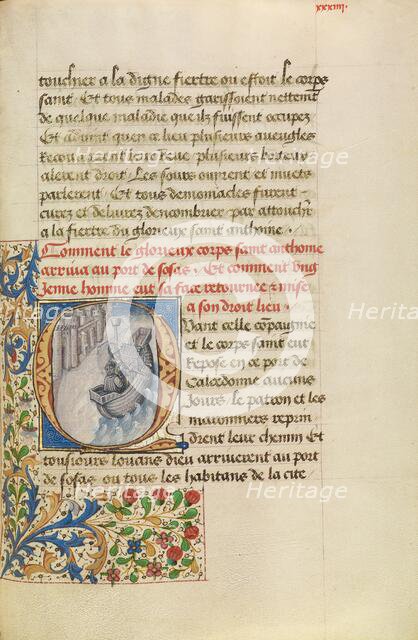 xxxiiij.
touchier a la digne fiertre ou estoit le corps
saint. Et tous malades garissoient nettement
de quelque maladie que ilz fuissent occupez
Et advint quen ce lieu plusieurs aveugles
plusieurs boiteux
alerent droit. Les sours oyrent et muetz
parlerent. Et tous demoniacles furent
curez et delivrez dencombrier par attouchier
a la fiertre du glorieux saint anthoine.
Comment le glorieux corps saint anthoine
arriva au port de sosas. Et comment ung
jenne homme eut sa face retournee et mise
a son droit lieu
Quant celle compaignie
et le corps saint eut
repose en ce port de
Calcedonne aucuns
jours. le patron et les
maronniers reprin
drent leur chemin et
tousiours louans dieu arriverent au port
de sosas ou tous les habitans de la cite
Heritage
Heritage
Heritage
Heritage
Heritage
Heritage